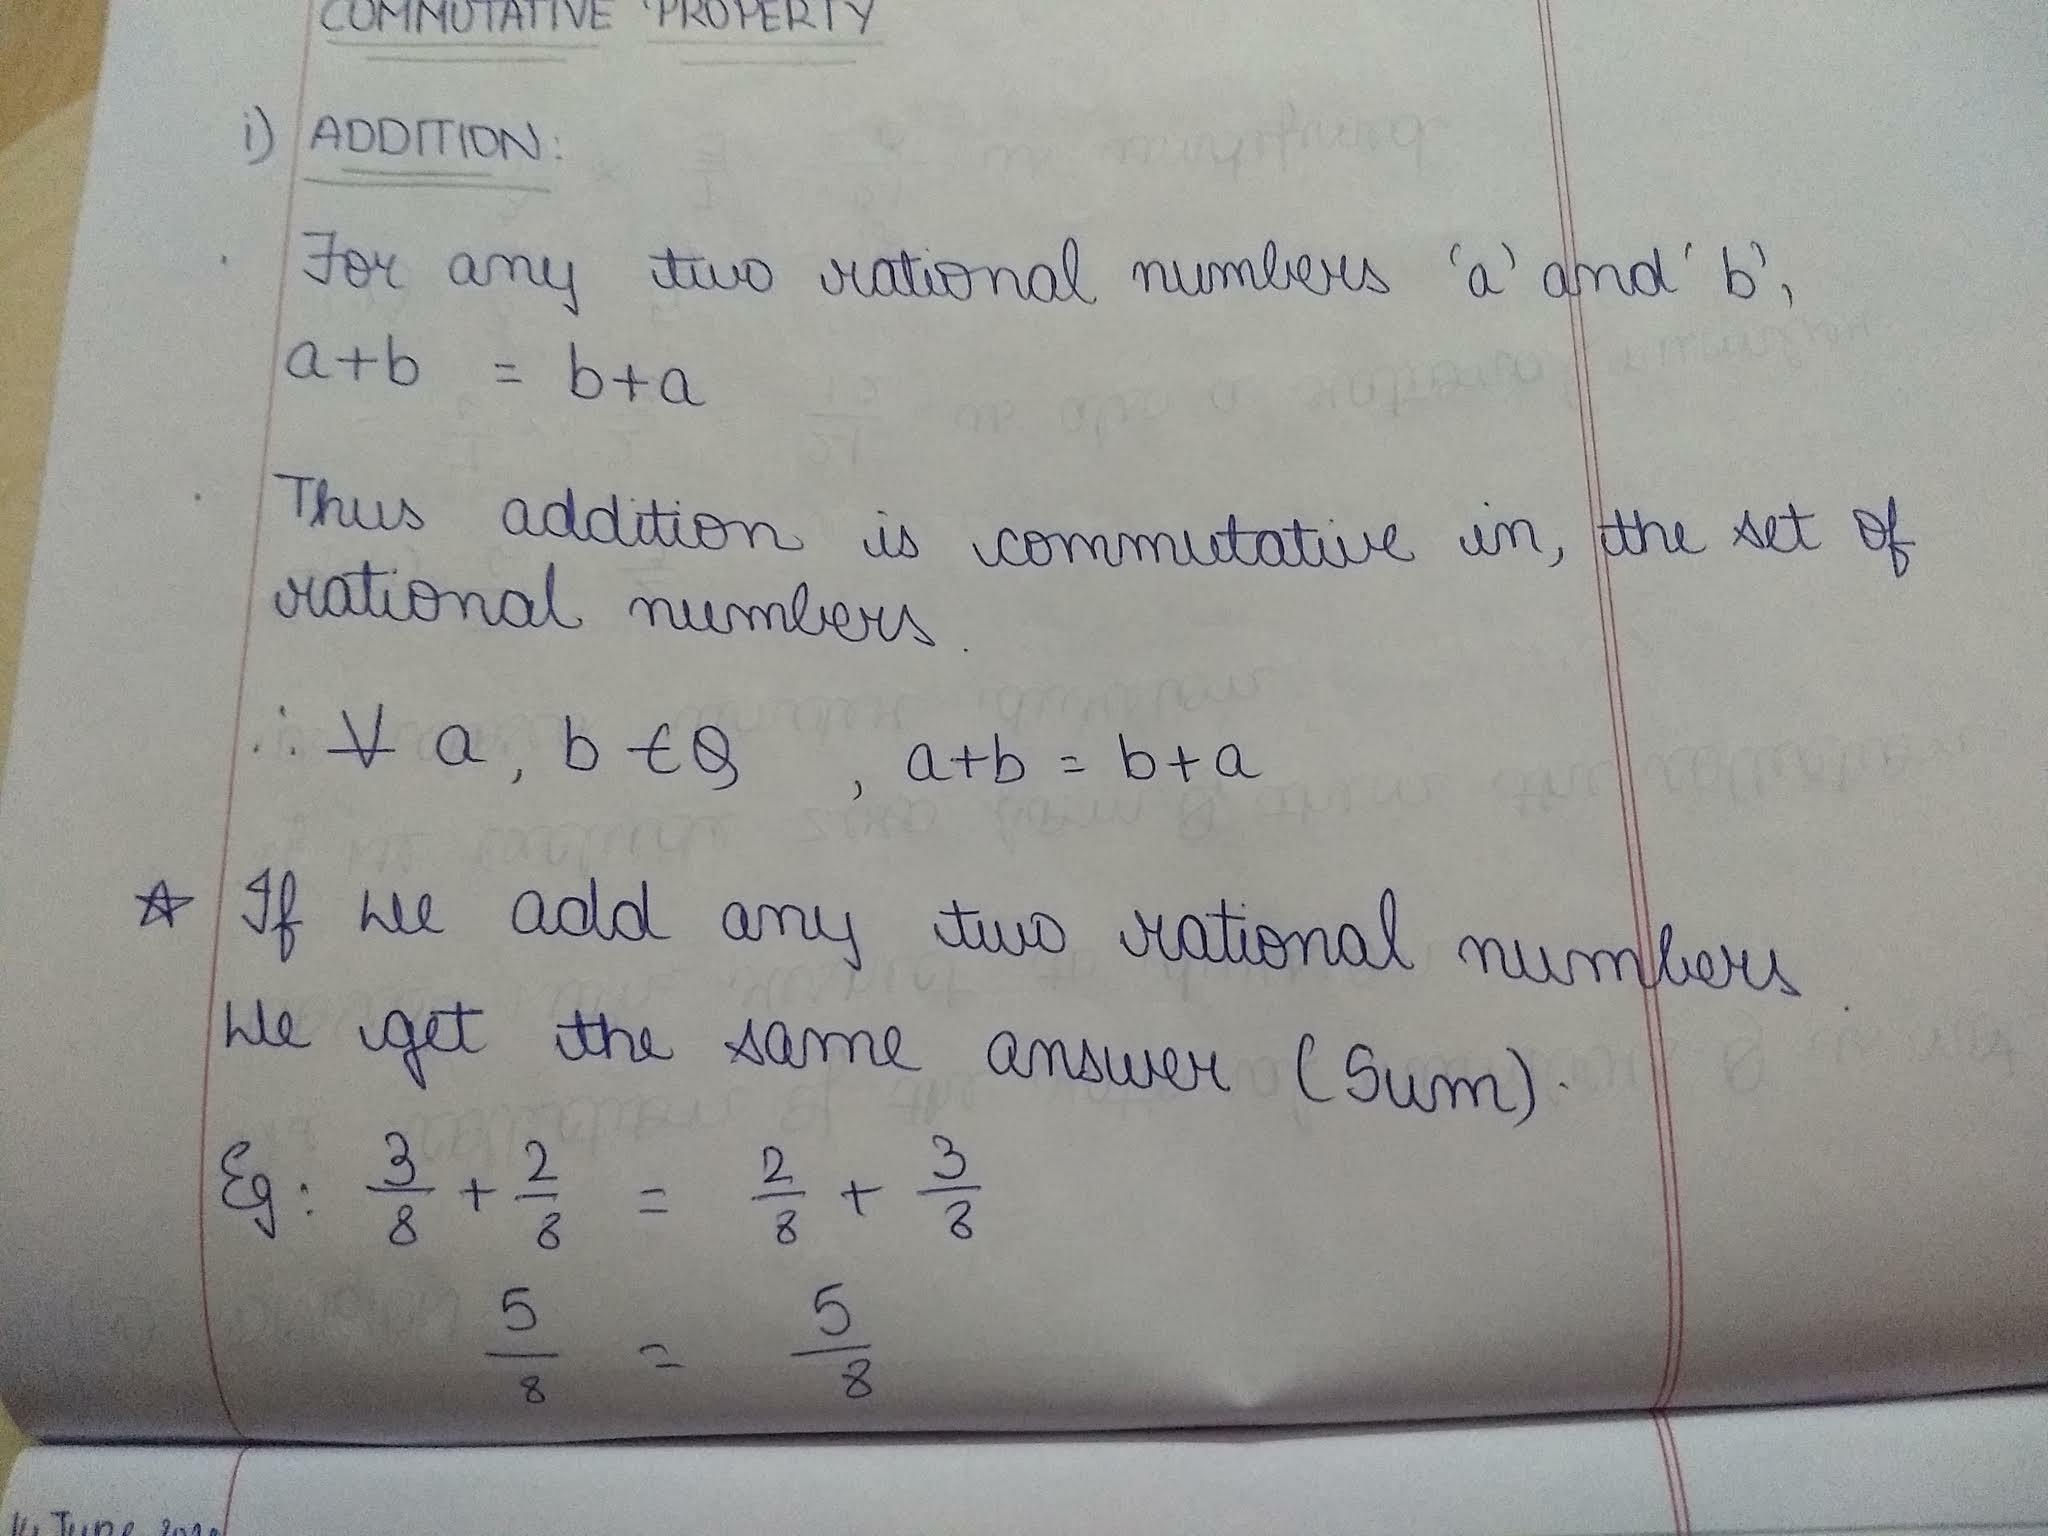 COMMUTATIVE PROPERTY
i) ADDITION:
For any two rational numbers 'a' and 'b',
a+b = b+a
Thus addition is commutative in, the set of
rational numbers.
∴ ∀ a, b ∈ Q , a+b = b+a
☆ If we add any two rational numbers
we get the same answer (Sum).
Eg: 3/8 + 2/8 = 2/8 + 3/8
5/8 = 5/8
14 June